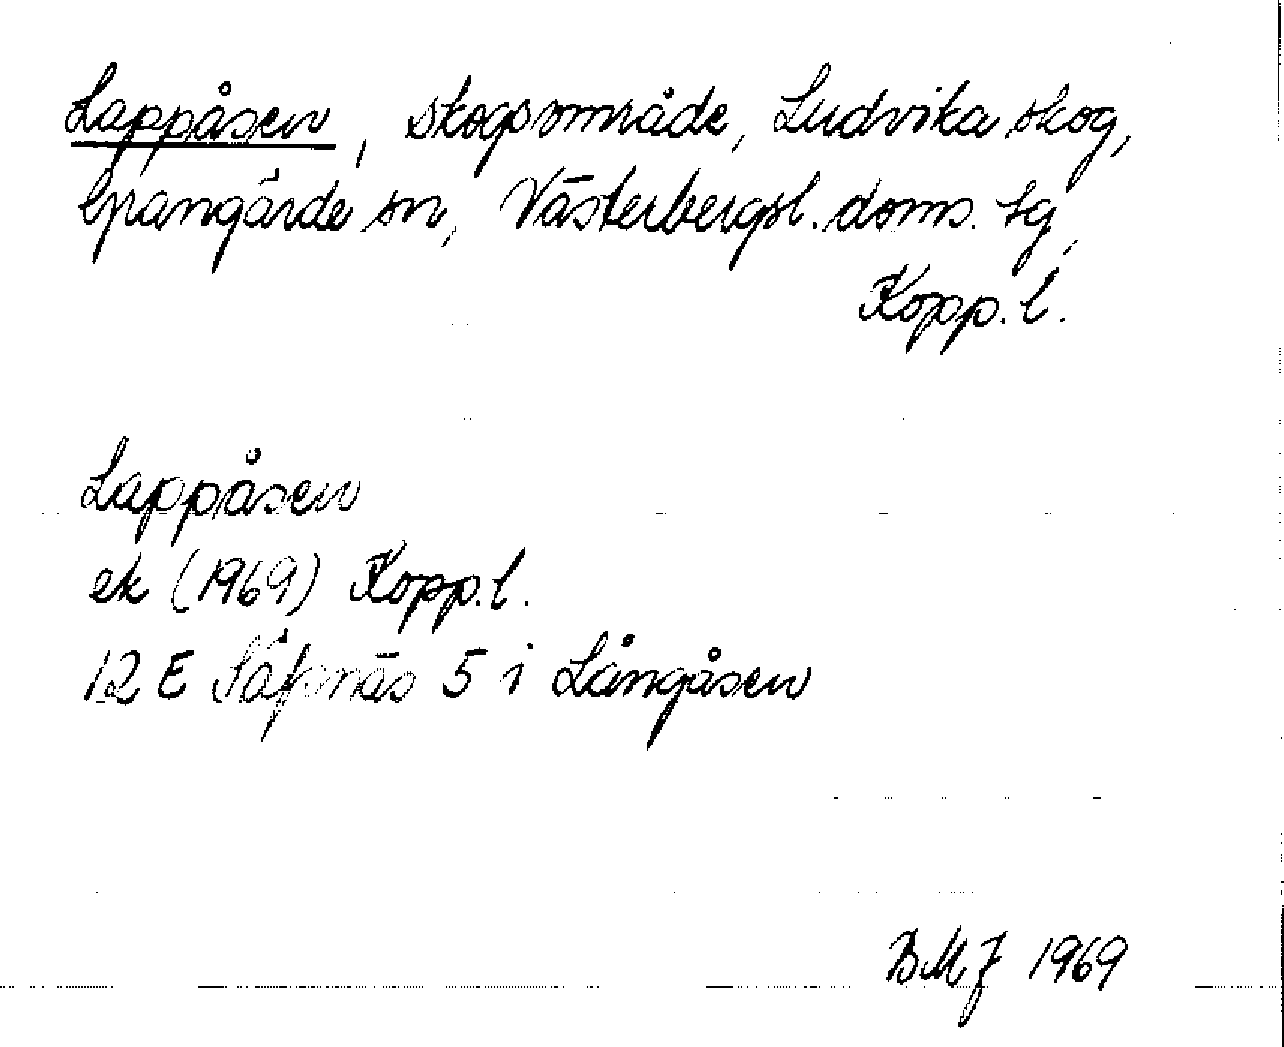 Lappåsen, skogsområde, Ludvika skog,
Grangärde sn, Västerbergsl. doms. tg,
Kopp. l.
Lappåsen
ek (1969) Kopp. l.
12 E Säfsnäs 5 i Långåsen
BMJ 1969